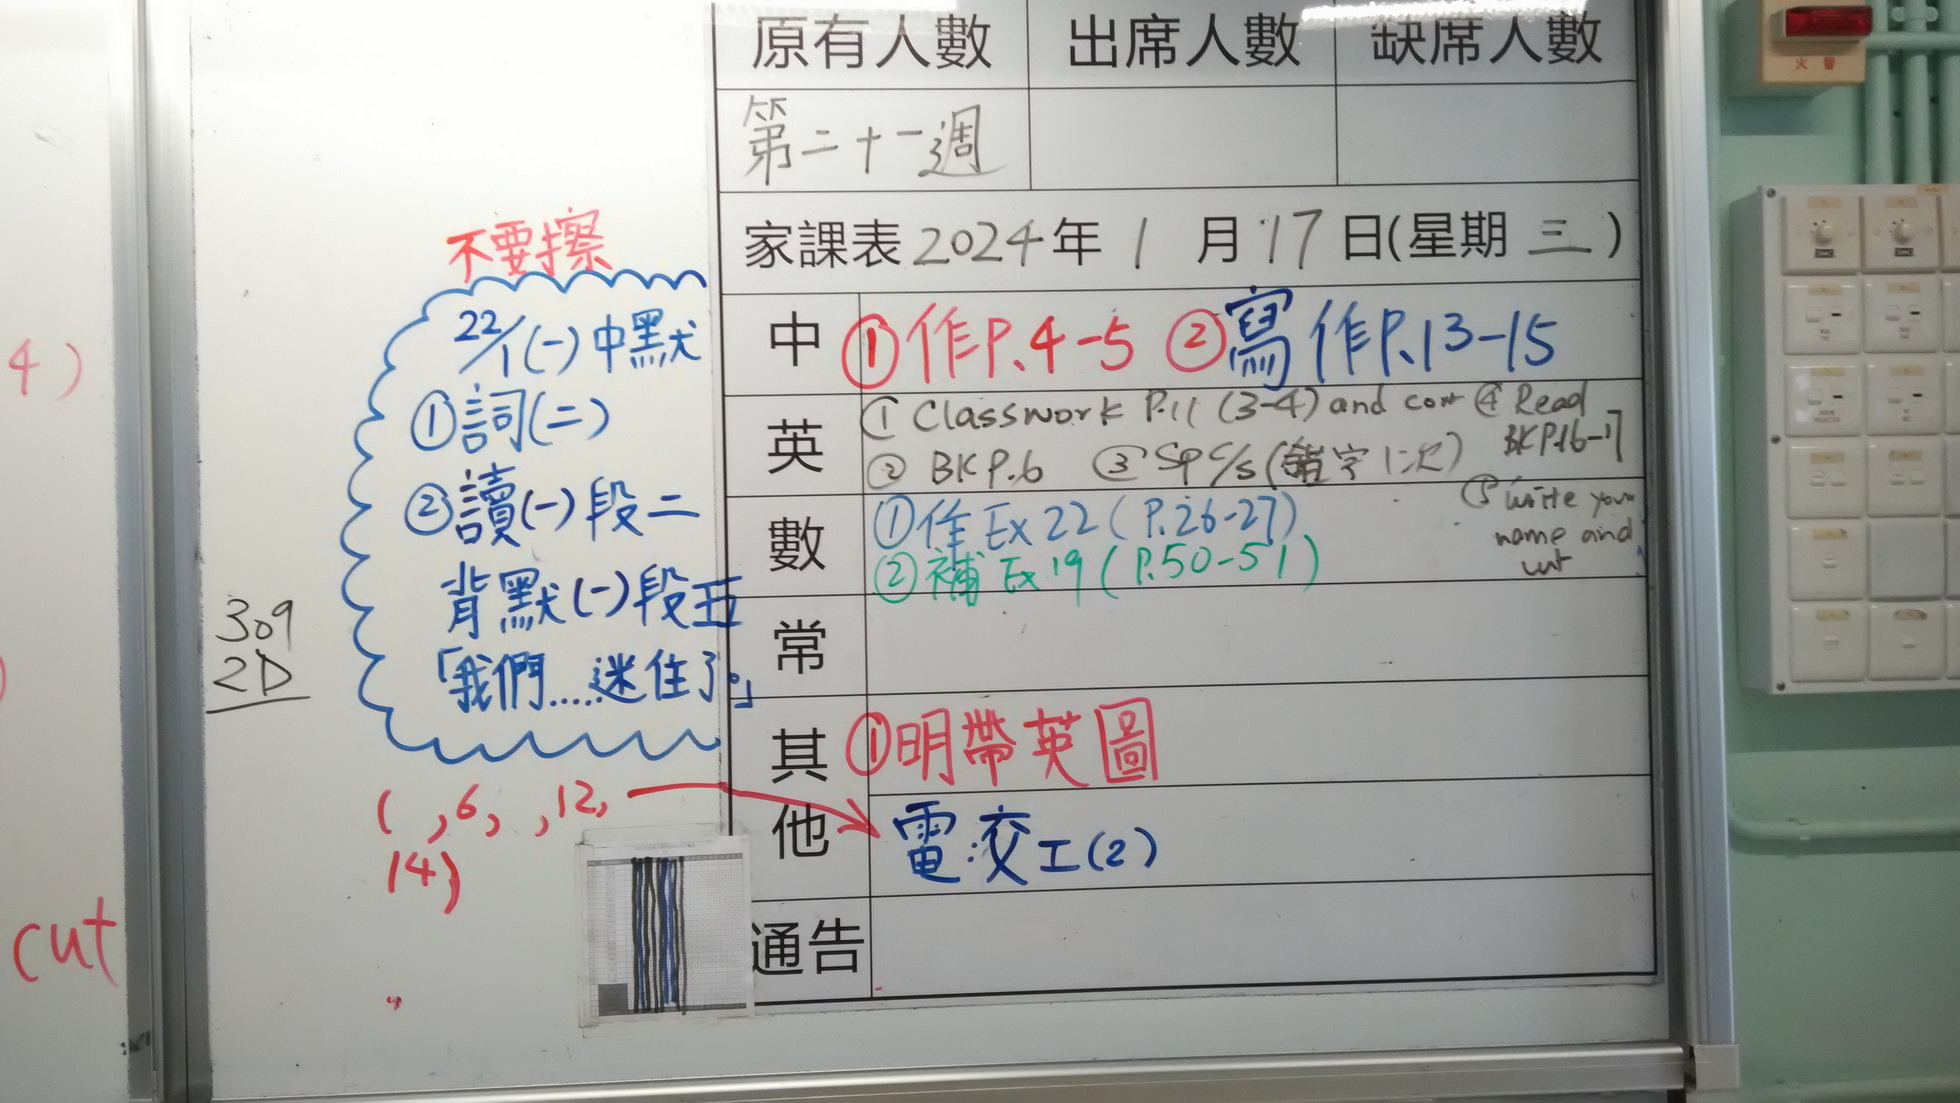 原有人數 出席人數 缺席人數
第二十一週
家課表 2024年 1 月 17 日(星期 三 )
中 ①作P.4-5 ②寫作P.13-15
英 ① Classwork P.11 (3-4) and corr ④ Read BKP.16-17
② BK P.6 ③ Sp c/s (錯字1次)
⑤ Write your name and cut
數 ①作Ex 22 (P.26-27)
②補 Ex 19 (P.50-51)
常
其他 ①明帶英圖
電交工(2)
通告
不要擦
22/1(一)中默
①詞(二)
②讀(一)段二
背默(一)段五
「我們.....迷住了。」
309
2D
( ,6, ,12,
14)
4)
)
cut
火警